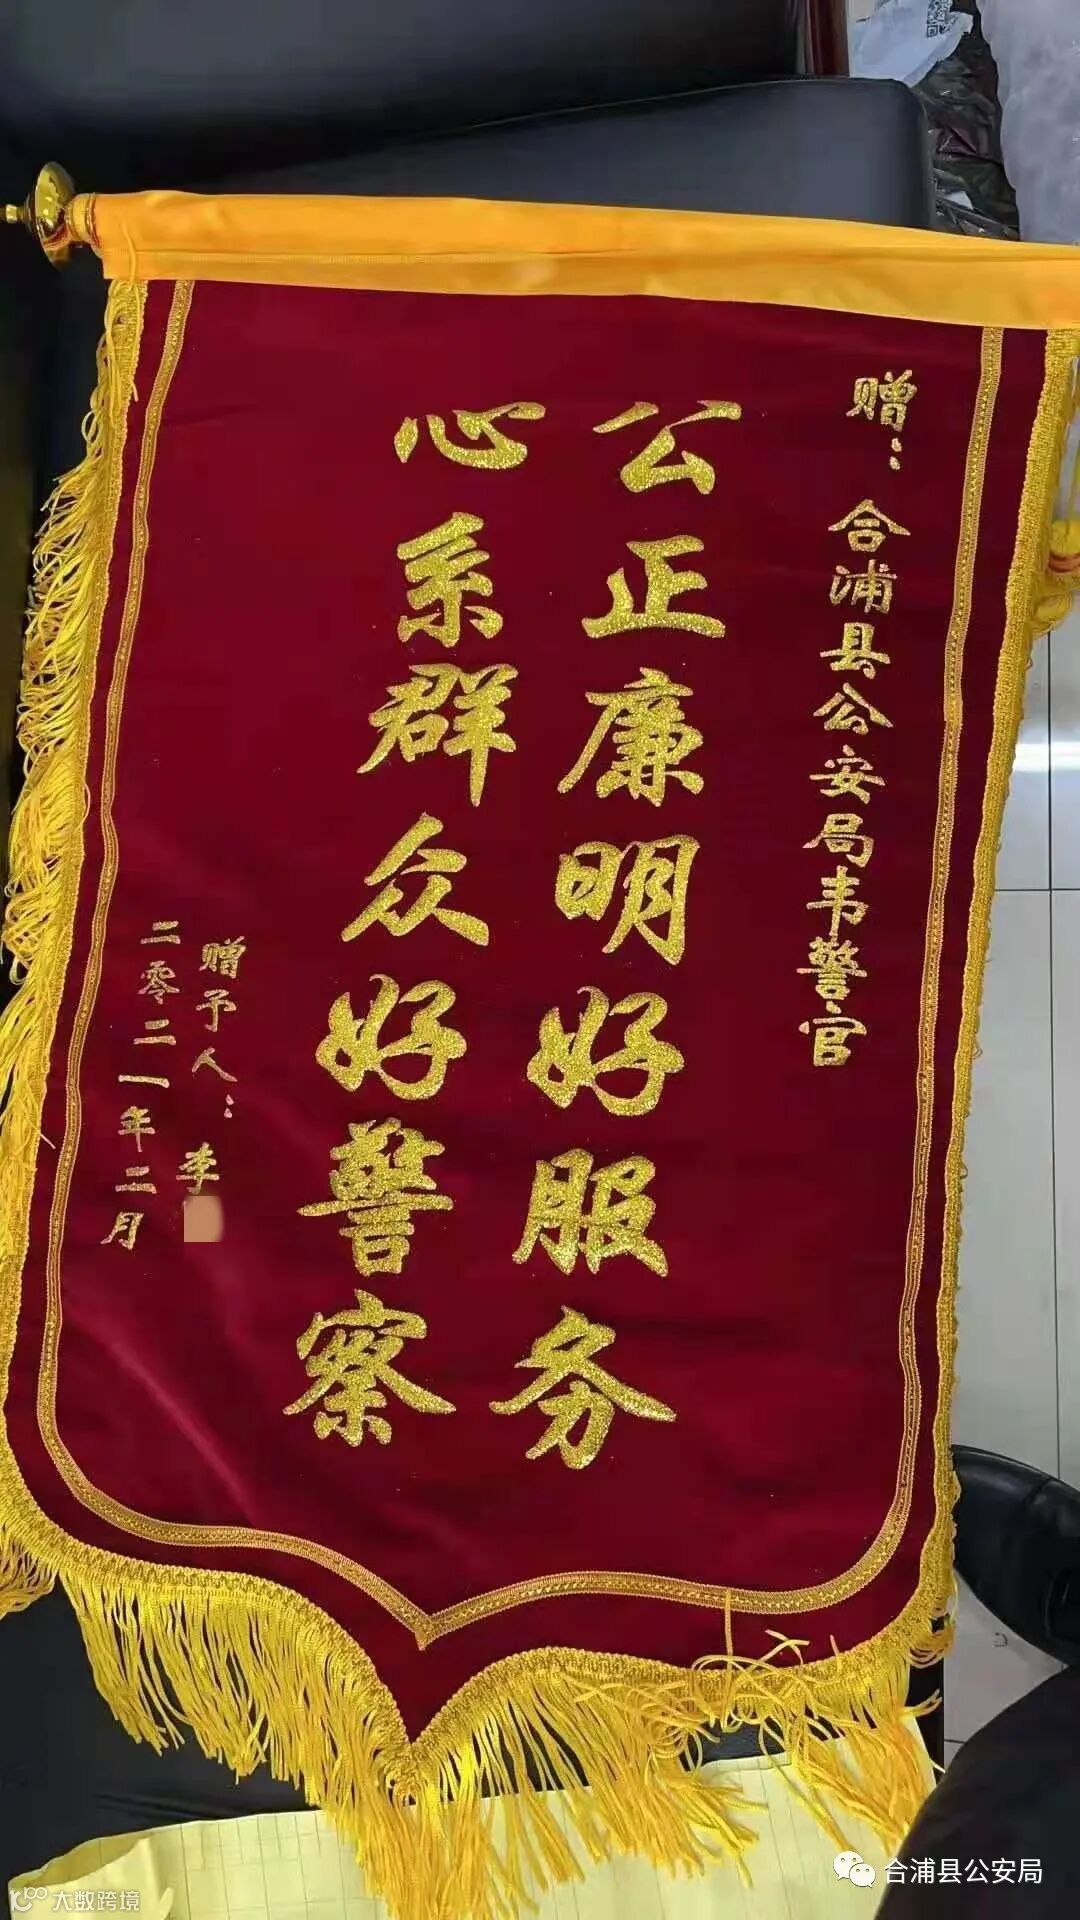 赠：合浦县公安局韦警官
公正廉明好服务
心系群众好警察
赠予人：李
二零二一年二月
合浦县公安局
大数跨境